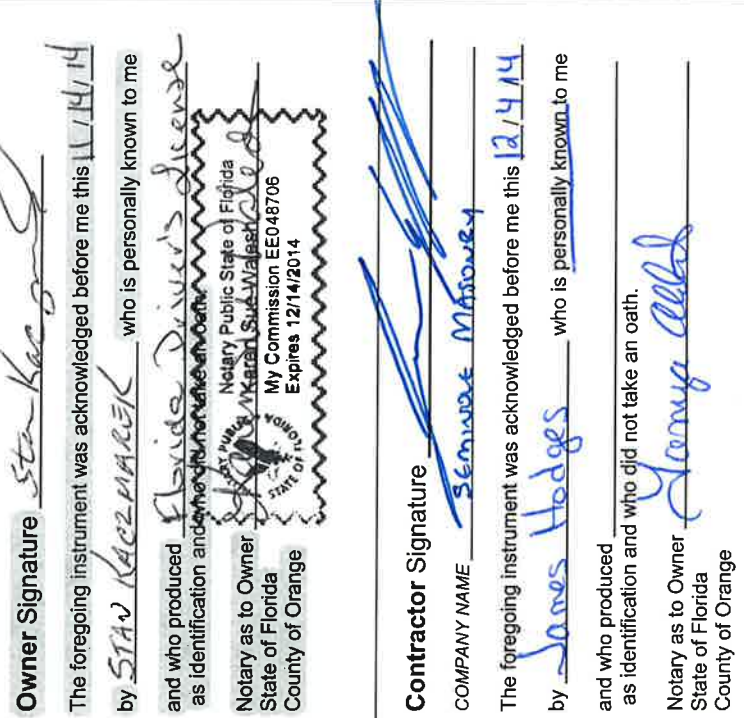 Owner Signature Stan Kaczmarek
The foregoing instrument was acknowledged before me this 11/14/14
by STAN KACZMAREK who is personally known to me
and who produced Florida Driver's License
as identification and who did not take an oath.
Notary as to Owner
State of Florida
County of Orange
Notary Public State of Florida
Karen Sue Walesh
My Commission EE048706
Expires 12/14/2014
NOTARY PUBLIC
STATE OF FLORIDA
Contractor Signature
COMPANY NAME SEMINOLE MASONRY
The foregoing instrument was acknowledged before me this 12/4/14
by James Hodges who is personally known to me
and who produced
as identification and who did not take an oath.
Notary as to Owner Tonya
State of Florida
County of Orange